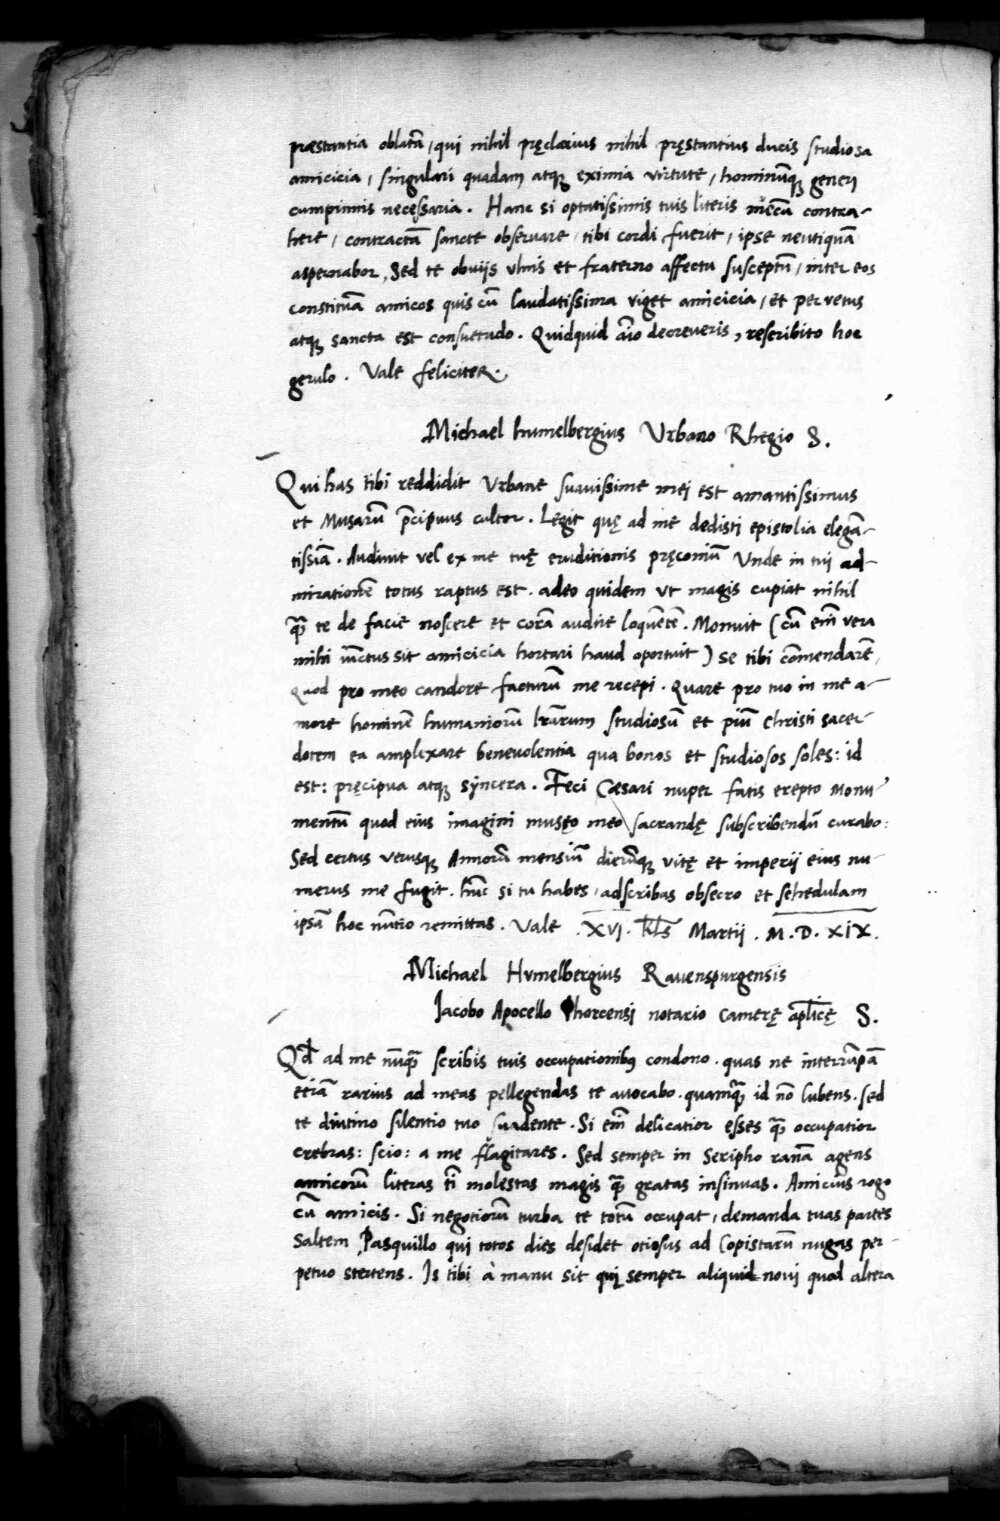 præstantia oblatā, qui nihil pręclarius nihil pręstantius ducis studiosa
amicicia, singulari quadam atqꝫ eximia virtute, hominūqꝫ generj
cumprimis necessaria. Hanc si optatissimis tuis literis mēcū contra-
here, contractā sancte observare tibi cordi fuerit, ipse neutiquā
aspernabor, Sed te obuijs vlnis et fraterno affectu susceptū, inter eos
constituā amicos quis cū laudatissima viget amicicia, et per vetus
atqꝫ sancta est consuetudo. Quidquid aīo decreveris, rescribito hoc
gerulo. Vale feliciter.
Michael humelbergius Urbano Rhegio S.
Qui has tibi reddidit Urbane suauissime mej est amantissimus
et Musarū p̄cipuus cultor. Legit quę ad me dedisti epistolia elegā-
tissīa. Audiuit vel ex me tuę eruditionis pręconiū Unde in tui ad-
mirationē totus raptus est. adeo quidem ut magis cupiat nihil
quā te de facie noscere et corā audire loquētē. Monuit (cū em̄ vera
mihi iūctus sit amicicia hortari haud oportuit) se tibi cōmendarē,
quod pro meo candore facturū me recepi. Quare pro tuo in me a-
more hominē humaniorū lr̄arum studiosū et piū Christi sacer-
dotem ea amplexare benevolentia qua bonos et studiosos soles: id
est: pręcipua atqꝫ syncera. Feci Cæsari nuper fatis erepto Monu-
mentū quod eius imagini musęo meo sacrandę subscribendū curabo:
Sed certus verusqꝫ Annorū mensiū dierūqꝫ vitę et imperij eius nu-
merus me fugit. hūc si tu habes, adscribas obsecro et schedulam
ipsā hoc nūtio remittas. Vale .XVI. kl̄s Martij. M.D.XIX.
Michael Humelbergius Rauenspurgensis
Jacobo Apocello Phorcensj notario camerę ap̄licę S.
Qd̄ ad me nūquā scribis tuis occupationibꝰ condono. quas ne interrūpā
etiā rarius ad meas pellegendas te auocabo. quamquā id nō lubens. sed
te diutino silentio tuo suadente. Si em̄ delicatior esses quā occupatior
crebras: scio: a me flagitares. Sed semper in Seripho ranā agens
amicorū literas tī molestas magis quā gratas insinuas. Amicius rogo
cū amicis. Si negotiorū turba te totū occupat, demanda tuas partes
saltem Pasquillo qui totos dies desidet otiosus ad Copistarū nugas per-
petuo stertens. Is tibi à manu sit qui semper aliquid novi quod altera